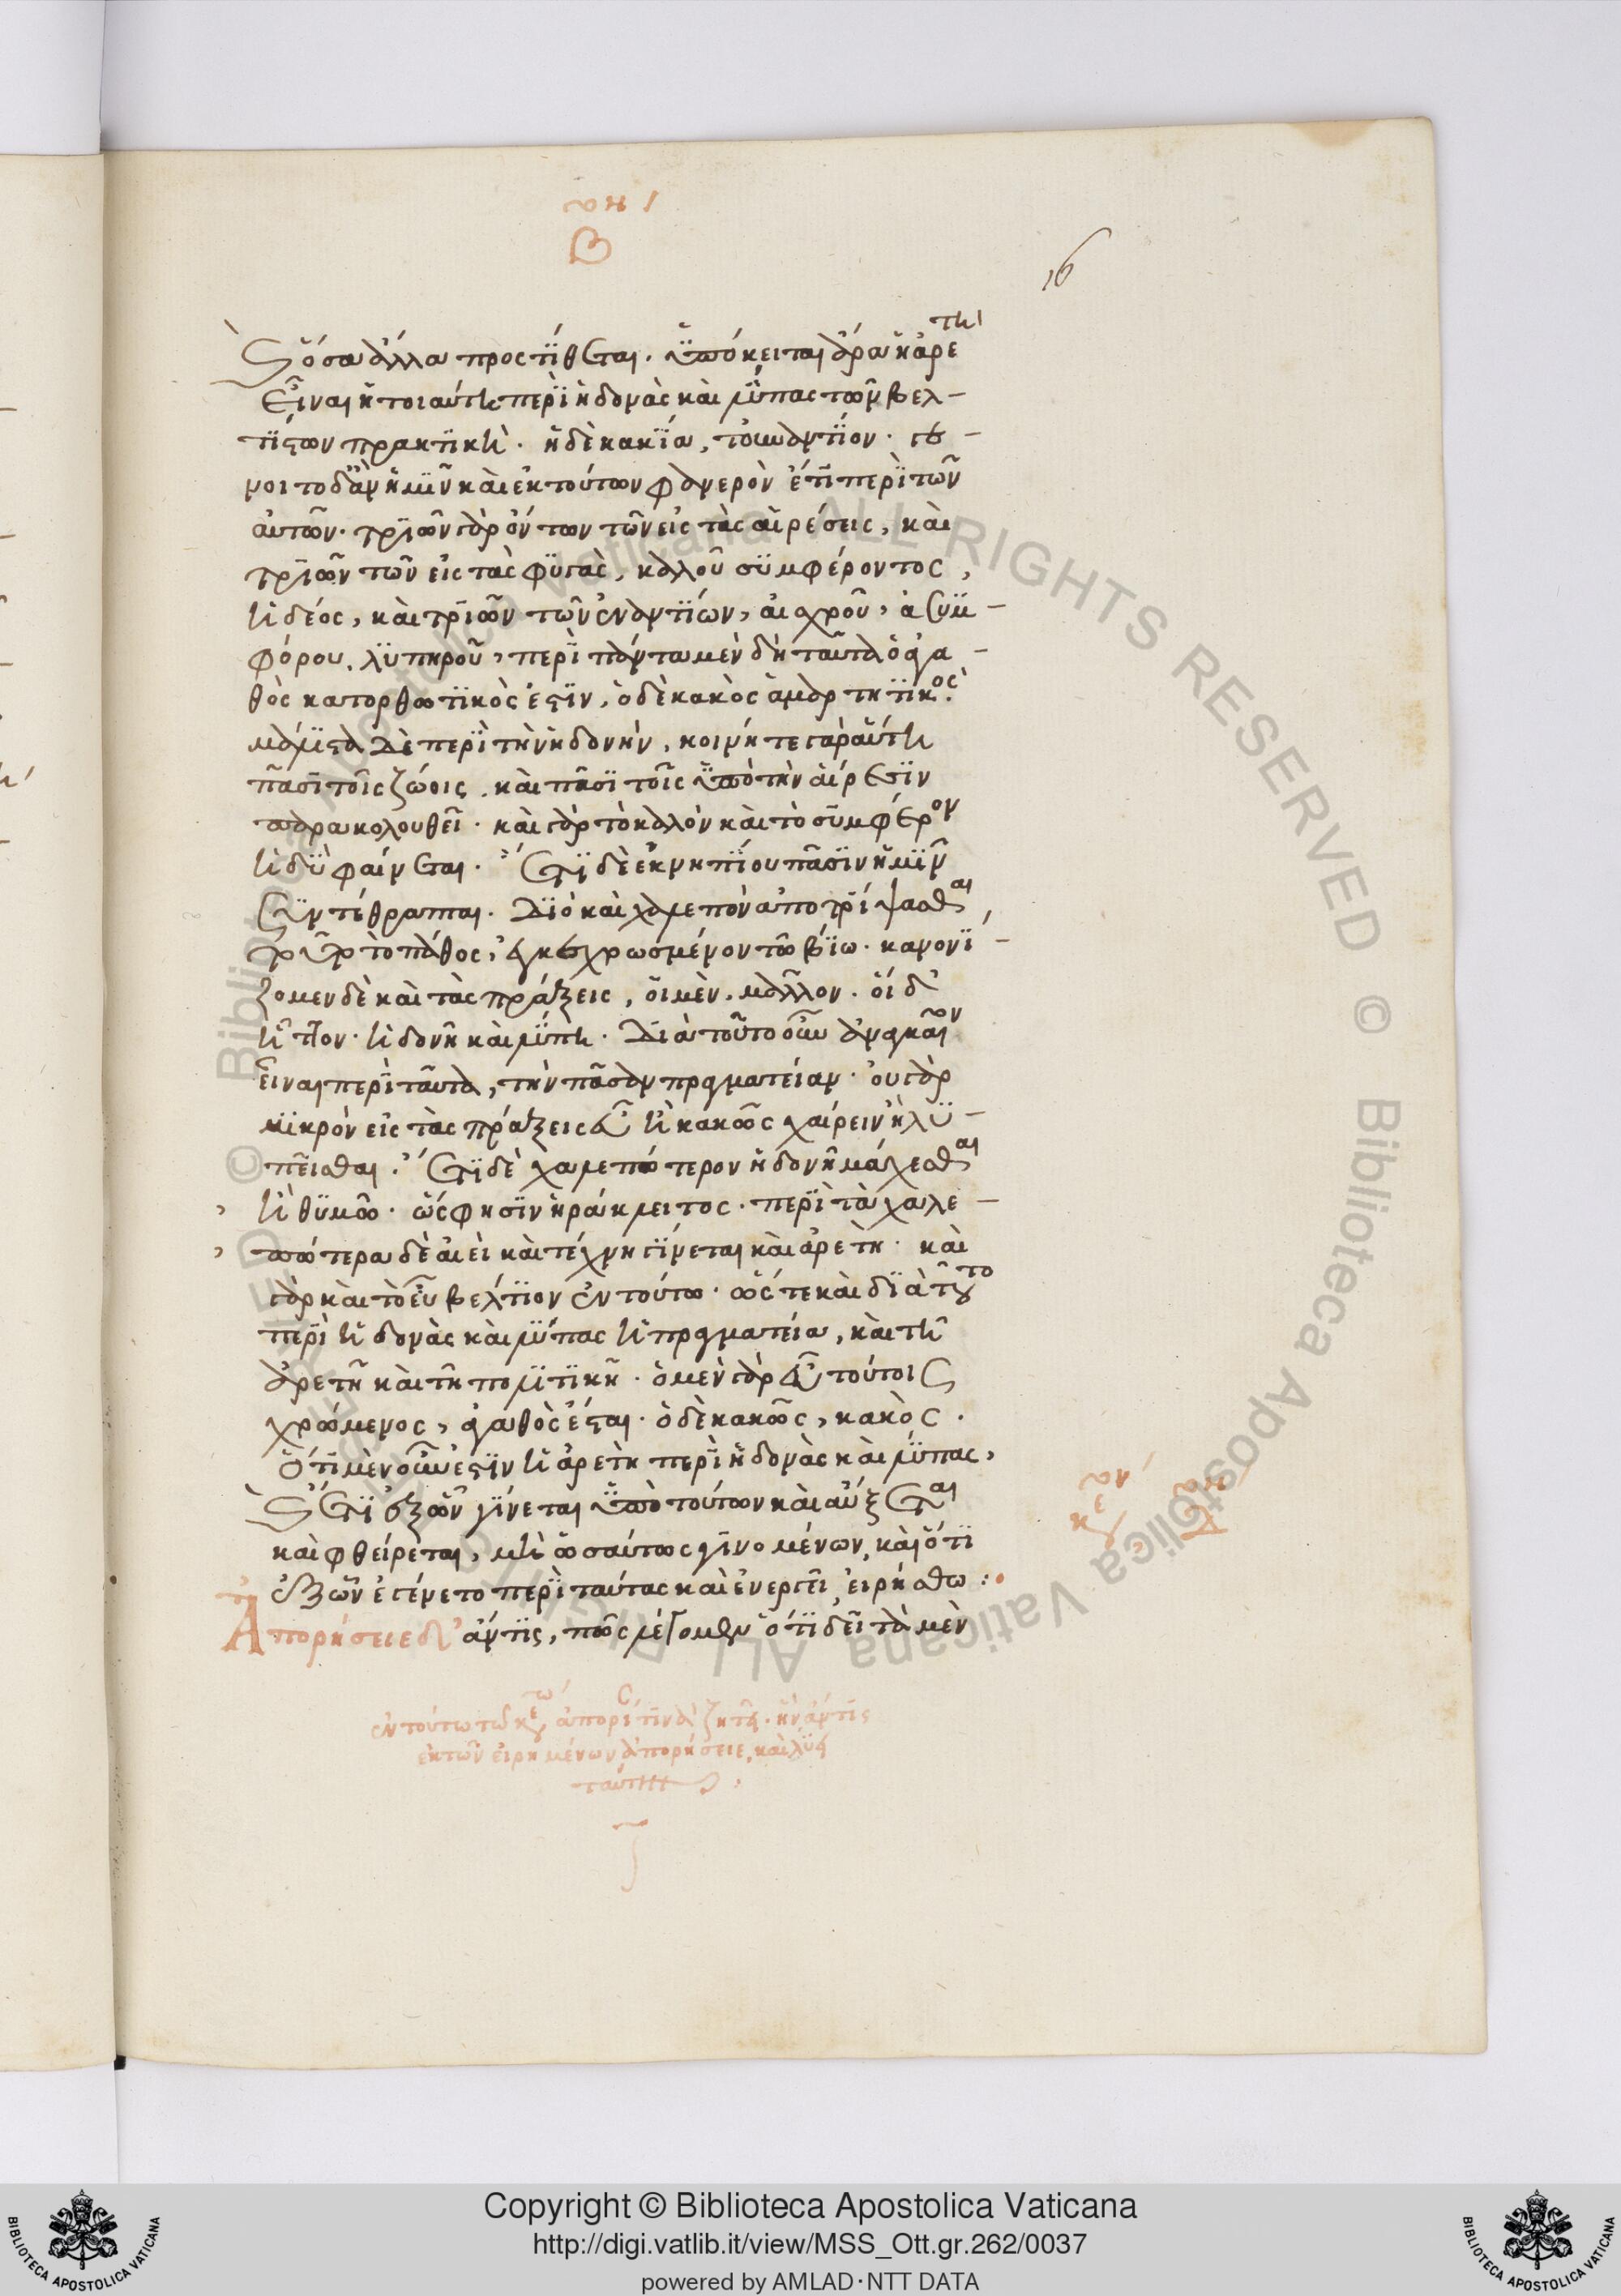 β
16
καὶ ὅσα ἄλλα προστίθεται. ὑπόκειται ἄρα ἡ ἀρετὴ
εἶναι ἡ τοιαύτη περὶ ἡδονὰς καὶ λύπας τῶν βελ-
τίστων πρακτική. ἡ δὲ κακία, τοὐναντίον. γέ-
νοιτο δ' ἂν ἡμῖν καὶ ἐκ τούτων φανερὸν ἔτι περὶ τῶν
αὐτῶν. τριῶν γὰρ ὄντων τῶν εἰς τὰς αἱρέσεις, καὶ
τριῶν τῶν εἰς τὰς φυγὰς, καλοῦ συμφέροντος,
ἡδέος, καὶ τριῶν τῶν ἐναντίων, αἰσχροῦ, ἀσυμ-
φόρου, λυπηροῦ, περὶ πάντα μὲν δὴ ταῦτα ὁ ἀγα-
θὸς κατορθωτικὸς ἐστὶν, ὁ δὲ κακὸς ἁμαρτητικός.
μάλιστα δὲ περὶ τὴν ἡδονήν, κοινή τε γὰρ αὕτη
πᾶσι τοῖς ζώοις, καὶ πᾶσι τοῖς ὑπὸ τὴν αἵρεσιν
παρακολουθεῖ. καὶ γὰρ τὸ καλὸν καὶ τὸ συμφέρον
ἡδὺ φαίνεται. ἔτι δὲ ἐκ νηπίου πᾶσιν ἡμῖν
συντέθραπται. διὸ καὶ χαλεπὸν ἀποτρίψασθαι
τοῦτο τὸ πάθος, ἐγκεχρωσμένον τῶ βίω. κανονί-
ζομεν δὲ καὶ τὰς πράξεις, οἱ μὲν, μᾶλλον. οἱ δ'
ἧττον. ἡδονῆ καὶ λύπη. διὰ τοῦτο οὖν ἀναγκαῖον
εἶναι περὶ ταῦτα, τὴν πᾶσαν πραγματείαν. οὐ γὰρ
μικρὸν εἰς τὰς πράξεις εὖ ἢ κακῶς χαίρειν ἢ λυ-
πεῖσθαι. ἔτι δὲ χαλεπώτερον ἡδονῆ μάχεσθαι
ἢ θυμῶ. ὥς φησὶν ἡράκλειτος. περὶ τὰ χαλε-
πώτερα δὲ ἀεὶ καὶ τέχνη γίνεται καὶ ἀρετή. καὶ
γὰρ καὶ τὸ εὖ βέλτιον ἐν τούτω. ὥστε καὶ διὰ τοῦτο
περὶ ἡδονὰς καὶ λύπας ἡ πραγματεία, καὶ τῆ
ἀρετῆ καὶ τῆ πολιτικῆ. ὁ μὲν γὰρ εὖ τούτοις
χρώμενος, ἀγαθὸς ἔσται. ὁ δὲ κακῶς, κακός.
ὅτι μὲν οὖν ἐστὶν ἡ ἀρετὴ περὶ ἡδονὰς καὶ λύπας,
καὶ ὅτι ἐξ ὧν γίνεται ὑπὸ τούτων καὶ αὔξεται
καὶ φθείρεται, μὴ ὡσαύτως γινομένων, καὶ ὅτι
ἐξ ὧν ἐγένετο περὶ ταύτας καὶ ἐνεργεῖ, εἰρήσθω :.
Ἀπορήσειε δ' ἄν τις, πῶς λέγομεν ὅτι δεῖ τὰ μὲν
ἐν τούτω τῶ κεφαλαίω ἀπορίαν τινὰ ζητεῖ. ἣν ἄν τις
ἐκ τῶν εἰρημένων ἀπορήσειε, καὶ λύει
ταύτην